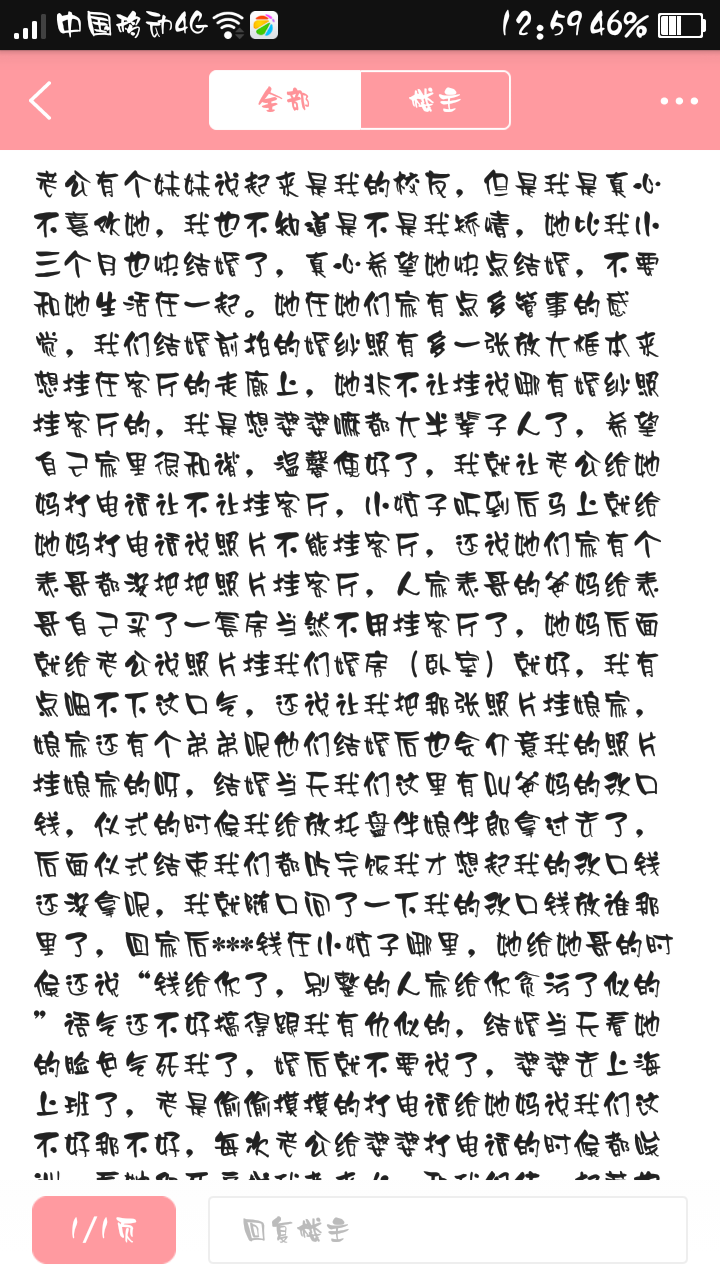 中国移动4G 12:59 46%
全部 楼主
老公有个妹妹说起来是我的校友，但是我是真心
不喜欢她，我也不知道是不是我矫情，她比我小
三个月也快结婚了，真心希望她快点结婚，不要
和她生活在一起。她在她们家有点多管事的感
觉，我们结婚前拍的婚纱照有多一张放大框本来
想挂在客厅的走廊上，她非不让挂说哪有婚纱照
挂客厅的，我是想婆婆嘛都大半辈子人了，希望
自己家里很和谐，温馨便好了，我就让老公给她
妈打电话让不让挂客厅，小姑子听到后马上就给
她妈打电话说照片不能挂客厅，还说她们家有个
表哥都没把把照片挂客厅，人家表哥的爸妈给表
哥自己买了一套房当然不用挂客厅了，她妈后面
就给老公说照片挂我们婚房（卧室）就好，我有
点咽不下这口气，还说让我把那张照片挂娘家，
娘家还有个弟弟呢他们结婚后也会介意我的照片
挂娘家的呀，结婚当天我们这里有叫爸妈的改口
钱，仪式的时候我给放托盘伴娘伴郎拿过去了，
后面仪式结束我们都吃完饭我才想起我的改口钱
还没拿呢，我就随口问了一下我的改口钱放谁那
里了，回家后***钱在小姑子哪里，她给她哥的时
候还说“钱给你了，别整的人家给你贪污了似的
”语气还不好搞得跟我有仇似的，结婚当天看她
的脸色气死我了，婚后就不要说了，婆婆去上海
上班了，老是偷偷摸摸的打电话给她妈说我们这
不好那不好，每次老公给婆婆打电话的时候都挨
1/1页 回复楼主